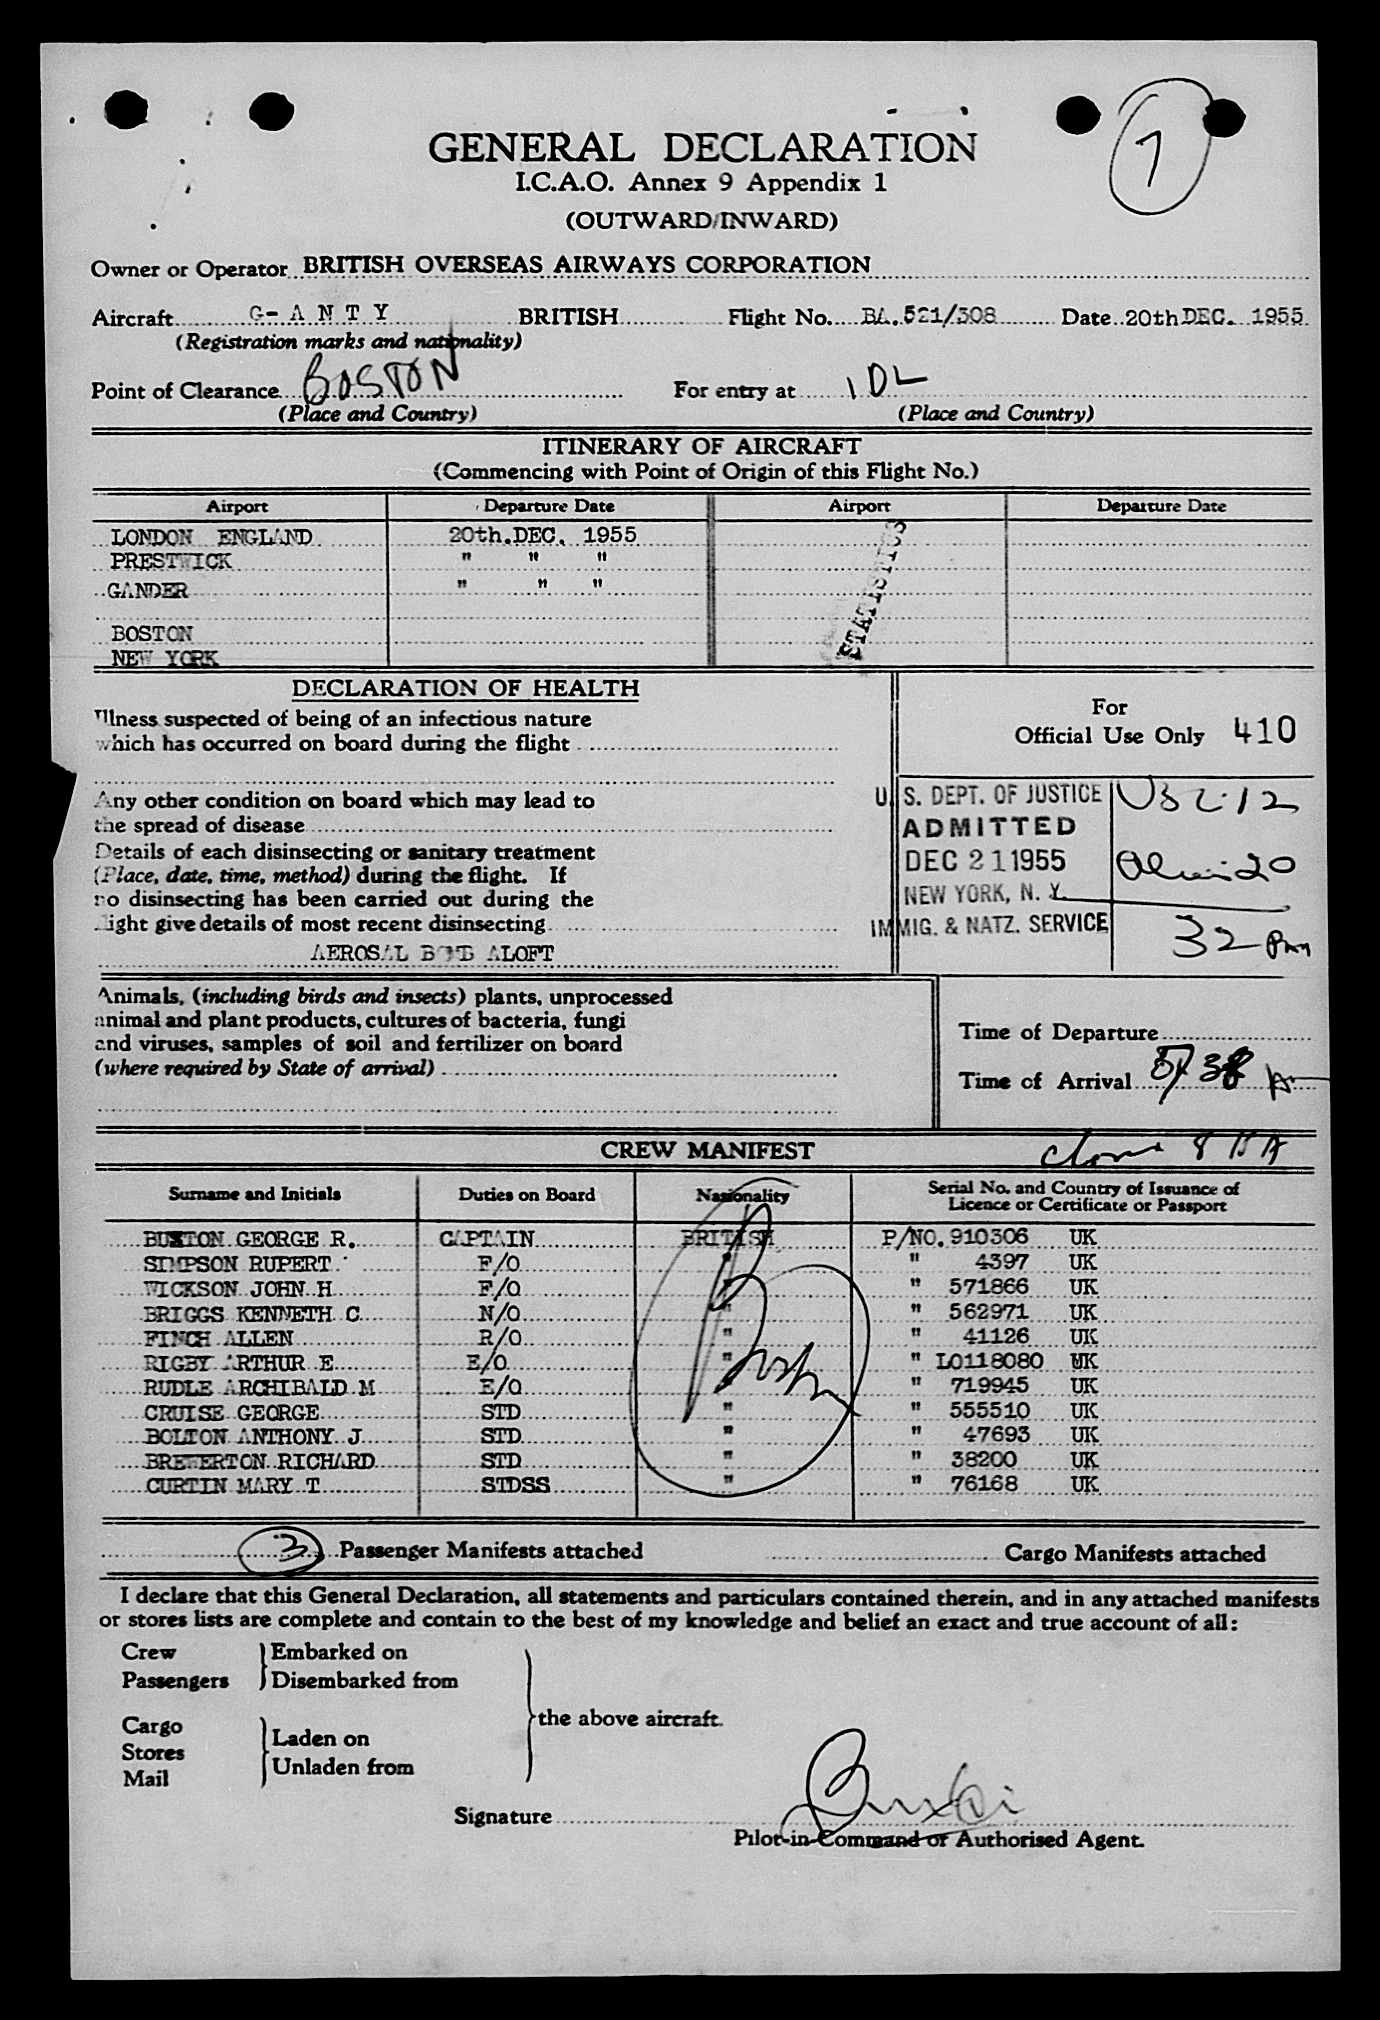 7
GENERAL DECLARATION
I.C.A.O. Annex 9 Appendix 1
(OUTWARD/INWARD)
Owner or Operator BRITISH OVERSEAS AIRWAYS CORPORATION
Aircraft G-ANTY BRITISH Flight No. BA.521/308 Date 20th DEC. 1955
(Registration marks and nationality)
Point of Clearance BOSTON For entry at IDL
(Place and Country) (Place and Country)
ITINERARY OF AIRCRAFT
(Commencing with Point of Origin of this Flight No.)
Airport Departure Date Airport Departure Date
LONDON ENGLAND 20th.DEC. 1955
PRESTWICK " " "
GANDER " " "
BOSTON
NEW YORK
STATISTICS
DECLARATION OF HEALTH
Illness suspected of being of an infectious nature
which has occurred on board during the flight
Any other condition on board which may lead to
the spread of disease
Details of each disinsecting or sanitary treatment
(Place, date, time, method) during the flight. If
no disinsecting has been carried out during the
flight give details of most recent disinsecting
AEROSAL BOMB ALOFT
For
Official Use Only 410
U. S. DEPT. OF JUSTICE
ADMITTED
DEC 21 1955
NEW YORK, N. Y.
IMMIG. & NATZ. SERVICE
32 Pm
Animals, (including birds and insects) plants, unprocessed
animal and plant products, cultures of bacteria, fungi
and viruses, samples of soil and fertilizer on board
(where required by State of arrival)
Time of Departure
Time of Arrival
CREW MANIFEST
Surname and Initials Duties on Board Nationality Serial No. and Country of Issuance of
Licence or Certificate or Passport
BUXTON GEORGE R. CAPTAIN BRITISH P/NO. 910306 UK
SIMPSON RUPERT F/O " " 4397 UK
WICKSON JOHN H F/O " " 571866 UK
BRIGGS KENNETH C N/O " " 562971 UK
FINCH ALLEN R/O " " 41126 UK
RIGBY ARTHUR E E/O " " L0118080 UK
RUDLE ARCHIBALD M E/O " " 719945 UK
CRUISE GEORGE STD " " 555510 UK
BOLTON ANTHONY J STD " " 47693 UK
BRETERTON RICHARD STD " " 38200 UK
CURTIN MARY T STDSS " " 76168 UK
3 Passenger Manifests attached Cargo Manifests attached
I declare that this General Declaration, all statements and particulars contained therein, and in any attached manifests
or stores lists are complete and contain to the best of my knowledge and belief an exact and true account of all:
Crew
Passengers
Embarked on
Disembarked from
Cargo
Stores
Mail
Laden on
Unladen from
the above aircraft.
Signature
Pilot-in-Command or Authorised Agent.